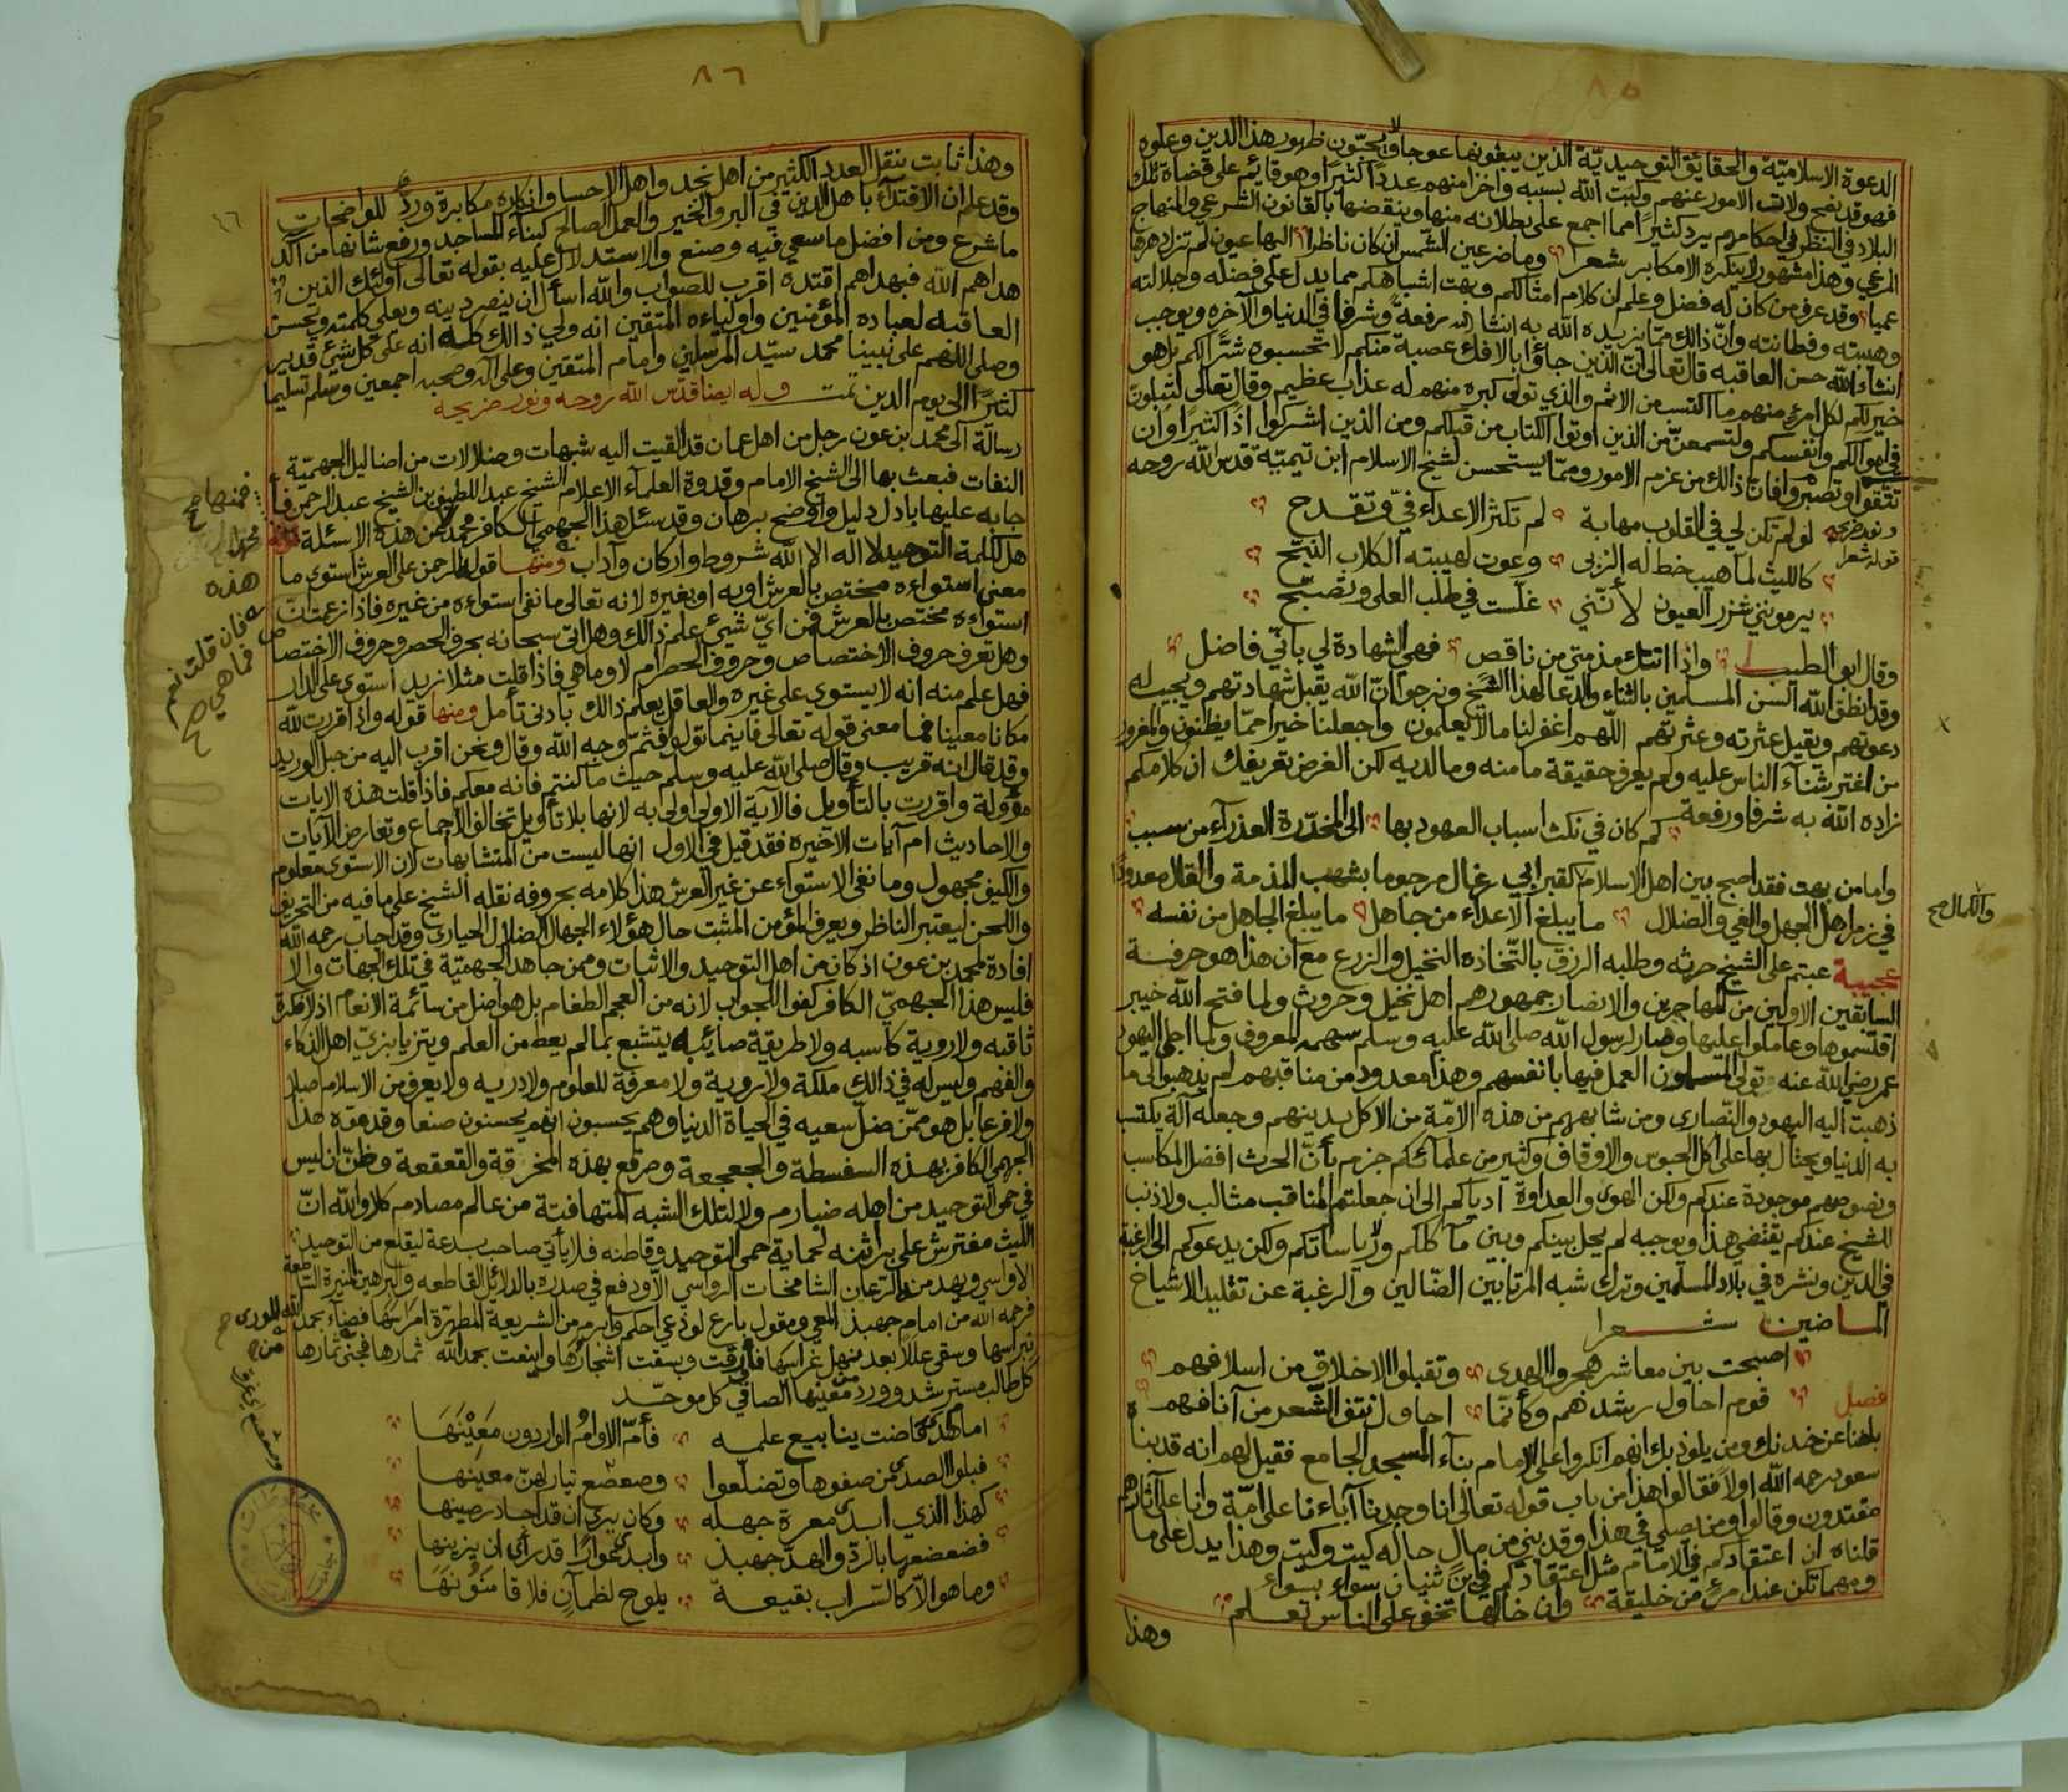 ٨٥
الدعوة الاسلامية والحقايق التوحيدية الذين يبغونها عوجا ولا يحبون ظهور هذا الدين وعلوه
فهو قد نصح ولاة الامور عنهم وكبت الله بسببه واخزا منهم عددا كثيرا وهو قائم على قضاة تلك
البلاد في النظر في احكامهم يرد كثيرا مما اجمع على بطلانه منها وينقضها بالقانون الشرعي والمنهاج
المرعي وهذا مشهور لا ينكره الا مكابر شعرا وما ضر عين الشمس ان كان ناظرا اليها عيون لم تزل دهرها
عميا وقد عرف من كان له فضل وعلم ان كلام امثالكم وبهت اشباهكم مما يدل على فضله وجلالته
وهيبته وفطانته وان ذالك مما يزيده الله به انشا الله رفعة وشرفا في الدنيا والآخره ويوجب
انشاء الله حسن العاقبه قال تعالى ان الذين جاؤا بالافك عصبة منكم لا تحسبوه شرا لكم بل هو
خير لكم لكل امرء منهم ما اكتسب من الاثم والذي تولى كبره منهم له عذاب عظيم وقال تعالى لتبلون
في اموالكم وانفسكم ولتسمعن من الذين اوتوا الكتاب من قبلكم ومن الذين اشركوا اذا كثيرا وان
تتقوا وتصبروا فان ذالك من عزم الامور ومما يستحسن لشيخ الاسلام ابن تيمية قدس الله روحه
ونور ضريحه قوله شعرا لو لم تكن لي في القلوب مهابة لم تكثر الاعداء في وتقدح
كالليث لما هيب خط له الزبى وعوت لهيبته الكلاب النبح
يرمونني شزر العيون لأنني غلست في طلب العلى وتصبح
وقال ابو الطيب واذا اتتك مذمتي من ناقص فهي الشهادة لي باني فاضل
وقد انطق الله السن المسلمين بالثناء والدعا لهذا الشيخ ونرجوا ان الله يقبل شهادتهم ويجيب له
دعوتهم ويقيل عثرته وعثرتهم اللهم اغفر لنا ما لا يعلمون واجعلنا خيرا مما يظنون والمغرور
من اغتر بثنآء الناس عليه ولم يعرف حقيقة ما منه وما لديه لكن الغرض تعريفك ان كلامكم
زاده الله به شرفا ورفعة كم كان في نكث اسباب العهود بها الى المخدرة العذرآء من سبب
واما من بهت فقد اصبح بين اهل الاسلام كقبر ابي رغال مرجوما بشهب المذمة والقال معدودا
في زمر اهل الجهل والغي والضلال ما يبلغ الاعداء من جاهل ما يبلغ الجاهل من نفسه
والكمال صح
عجيبة عبتم على الشيخ حرثه وطلبه الرزق باتخاذه النخيل والزرع مع ان هذا هو حرفة
السابقين الاولين من المهاجرين والانصار جمهورهم اهل نخيل وحروث ولما فتح الله خيبر
اقتسموها وعاملوا عليها وصار لرسول الله صلى الله عليه وسلم سهمه المعروف ولما اجلى اليهود
عمر رضي الله عنه تولى المسلمون العمل فيها بانفسهم وهذا معدود من مناقبهم لم يذهبوا الى ما
ذهبت اليه اليهود والنصارى ومن شابههم من هذه الامة من الاكل بدينهم وجعله آلة يكتسب
به الدنيا ويحتال بها على اكل الحبوس والاوقاف وكثير من علمائكم جزم بأن الحرث افضل المكاسب
ونصوصهم موجودة عندكم ولكن الهوى والعداوة أدياكم الى ان جعلتم المناقب مثالب ولا ذنب
للشيخ عندكم يقتضي هذا ويوجبه لم يحل بينكم وبين مآكلكم ولا رياساتكم ولكن يدعوكم الى الرغبة
في الدين ونشره في بلاد المسلمين وترك شبه المرتابين الضالين والرغبة عن تقليد الاشياخ
الماضين شعرا
اصبحت بين معاشر هجروا الهدى وتقبلوا الاخلاق من اسلافهم
قوم احاول رشدهم وكأنما احاول نتف الشعر من آنافهم
فصل
بلغنا عن خدنك ومن يلوذ بك انهم انكروا على الامام بنآء المسجد الجامع فقيل لهم انه قد بناه
سعود رحمه الله اولا فقالوا هذا من باب قوله تعالى انا وجدنا آباءنا على امة وانا على آثارهم
مقتدون وقالوا ومن يصلي في هذا وقد بني من مال حاله كيت وكيت وهذا يدل على ما
قلناه ان اعتقادكم في الامام مثل اعتقادكم في ثنيان سواء بسواء
ومهما تكن عند امرئ من خليقة وان خالها تخفى على الناس تعلم
وهذا
٨٦
وهذا ثابت بنقل العدد الكثير من اهل نجد واهل الاحسا وانكاره مكابرة ورد للواضحات
وقد علم ان الاقتدآء باهل الدين في البر والخير والعمل الصالح كبنآء المساجد ورفع شانها من آكد
ما شرع ومن افضل ما سعي فيه وصنع والاستدلال عليه بقوله تعالى اولئك الذين
هداهم الله فبهداهم اقتده اقرب للصواب والله اسأل ان ينصر دينه ويعلي كلمته ويحسن
العاقبه لعباده المؤمنين واوليائه المتقين انه ولي ذالك كله انه على كل شئ قدير
وصلى اللهم على نبينا محمد سيد المرسلين وامام المتقين وعلى آله وصحبه اجمعين وسلم تسليما
كثيرا الى يوم الدين تمت وله ايضا قدس الله روحه ونور ضريحه
رسالة الى محمد بن عون رجل من اهل عمان قد القيت اليه شبهات وضلالات من اضاليل الجهمية
النفات فبعث بها الى الشيخ الامام وقدوة العلمآء الاعلام الشيخ عبد اللطيف بن الشيخ عبد الرحمن فأ
جابه عليها بادل دليل واوضح برهان وقد سئل هذا الجهمي الكافر محمدا عن هذه الاسئلة
فمنها صح
هل لكلمة التوحيد لا اله الا الله شروط واركان وآداب ومنها قوله الرحمن على العرش استوى ما
معنى استواءه مختص بالعرش او به او بغيره لانه تعالى ما نفى استواءه من غيره فاذا زعمت ان
استواءه مختص بالعرش فمن اي شيئ علم ذالك وهل اتى سبحانه بحرف الحصر وحروف الاختصاص
وهل تعرف حروف الاختصاص وحروف الحصر ام لا وما هي فاذا قلت مثلا زيد استوى على الدار
فان قلت نعم فما هي صح
فهل علم منه انه لا يستوي على غيره والعاقل يعلم ذالك بادنى تأمل ومنها قوله واذا اقررت لله
مكانا معينا فما معنى قوله تعالى فاينما تولوا فثم وجه الله وقال ونحن اقرب اليه من حبل الوريد
وقد قال انه قريب وقال صلى الله عليه وسلم حيث ما كنتم فانه معكم فاذا قلت هذه الايات
مؤولة واقررت بالتأويل فالآية الاولى اولى به لانها بلا تأويل تخالف الاجماع وتعارض الآيات
والاحاديث ام آيات الاخيره فقد قيل في الاول انها ليست من المتشابهات لان الاستوى معلوم
والكيف مجهول وما نفى الاستواء عن غير العرش هذا كلامه بحروفه نقله الشيخ على ما فيه من التحريف
واللحن ليعتبر الناظر ويعرف المؤمن المثبت حال هؤلاء الجهال الضلال الحيارى وقد اجاب رحمه الله
افادة لمحمد بن عون اذ كان من اهل التوحيد والاثبات وممن جاهد الجهمية في تلك الجهات والا
فليس هذا الجهمي الكافر كفوا للجواب لانه من العجم الطغام بل هو اضل من سائمة الانعام اذ لا فكرة
ثاقبه ولا روية كاسبه ولا طريقة صائبه يتشبع بما لم يعط من العلم ويتزيا بزي اهل الذكاء
والفهم وليس له في ذالك ملكة ولا روية ولا معرفة للعلوم ولا دريه ولا يعرف من الاسلام اصلا
ولا فرعا بل هو ممن ضل سعيه في الحياة الدنيا وهم يحسبون انهم يحسنون صنعا وقد فوه هذا
الجهمي الكافر بهذه السفسطة والجعجعة وصرقع بهذه المخرقة والقعقعة وظن ان ليس
في حمى التوحيد من اهله ضبارم ولا لتلك الشبه المتهافتة من عالم مصادم كلا والله ان
الليث مفترش على براثنه لحماية حمى التوحيد وقاطنه فلا يأتي صاحب بدعة ليقلع من التوحيد
الاواسي ويهد من الرعان الشامخات الرواسي الا ودفع في صدره بالدلائل القاطعه والبراهين المنيرة الساطعة
فرحمه الله من امام جهبذ المعي ومقول بارع لوذعي احكم وابرم من الشريعة المطهرة امراسها فضآء بحمد الله للورى
نبراسها وسقى عللا بعد نهل غراسها فأورقت وبسقت اشجارها واينعت بحمد الله ثمارها فجنى ثمارها من
كل طالب مسترشد وورد من معينها الصافي كل موحد
اما قد فاضت ينابيع علمه فأم الاوام الواردون معينها
فبلوا الصدى من صفوها وتضلعوا وصعصع تيار لهن معينها
كهذا الذي ابدى معرة جهله وكان يرى ان قد اجاد رصينها
فضعضعها بالرد والهد جهبذ وابدى عوارا قد رأى ان يزينها
وما هو الا كالسراب بقيعة يلوح لظمآن فلاقا منونها